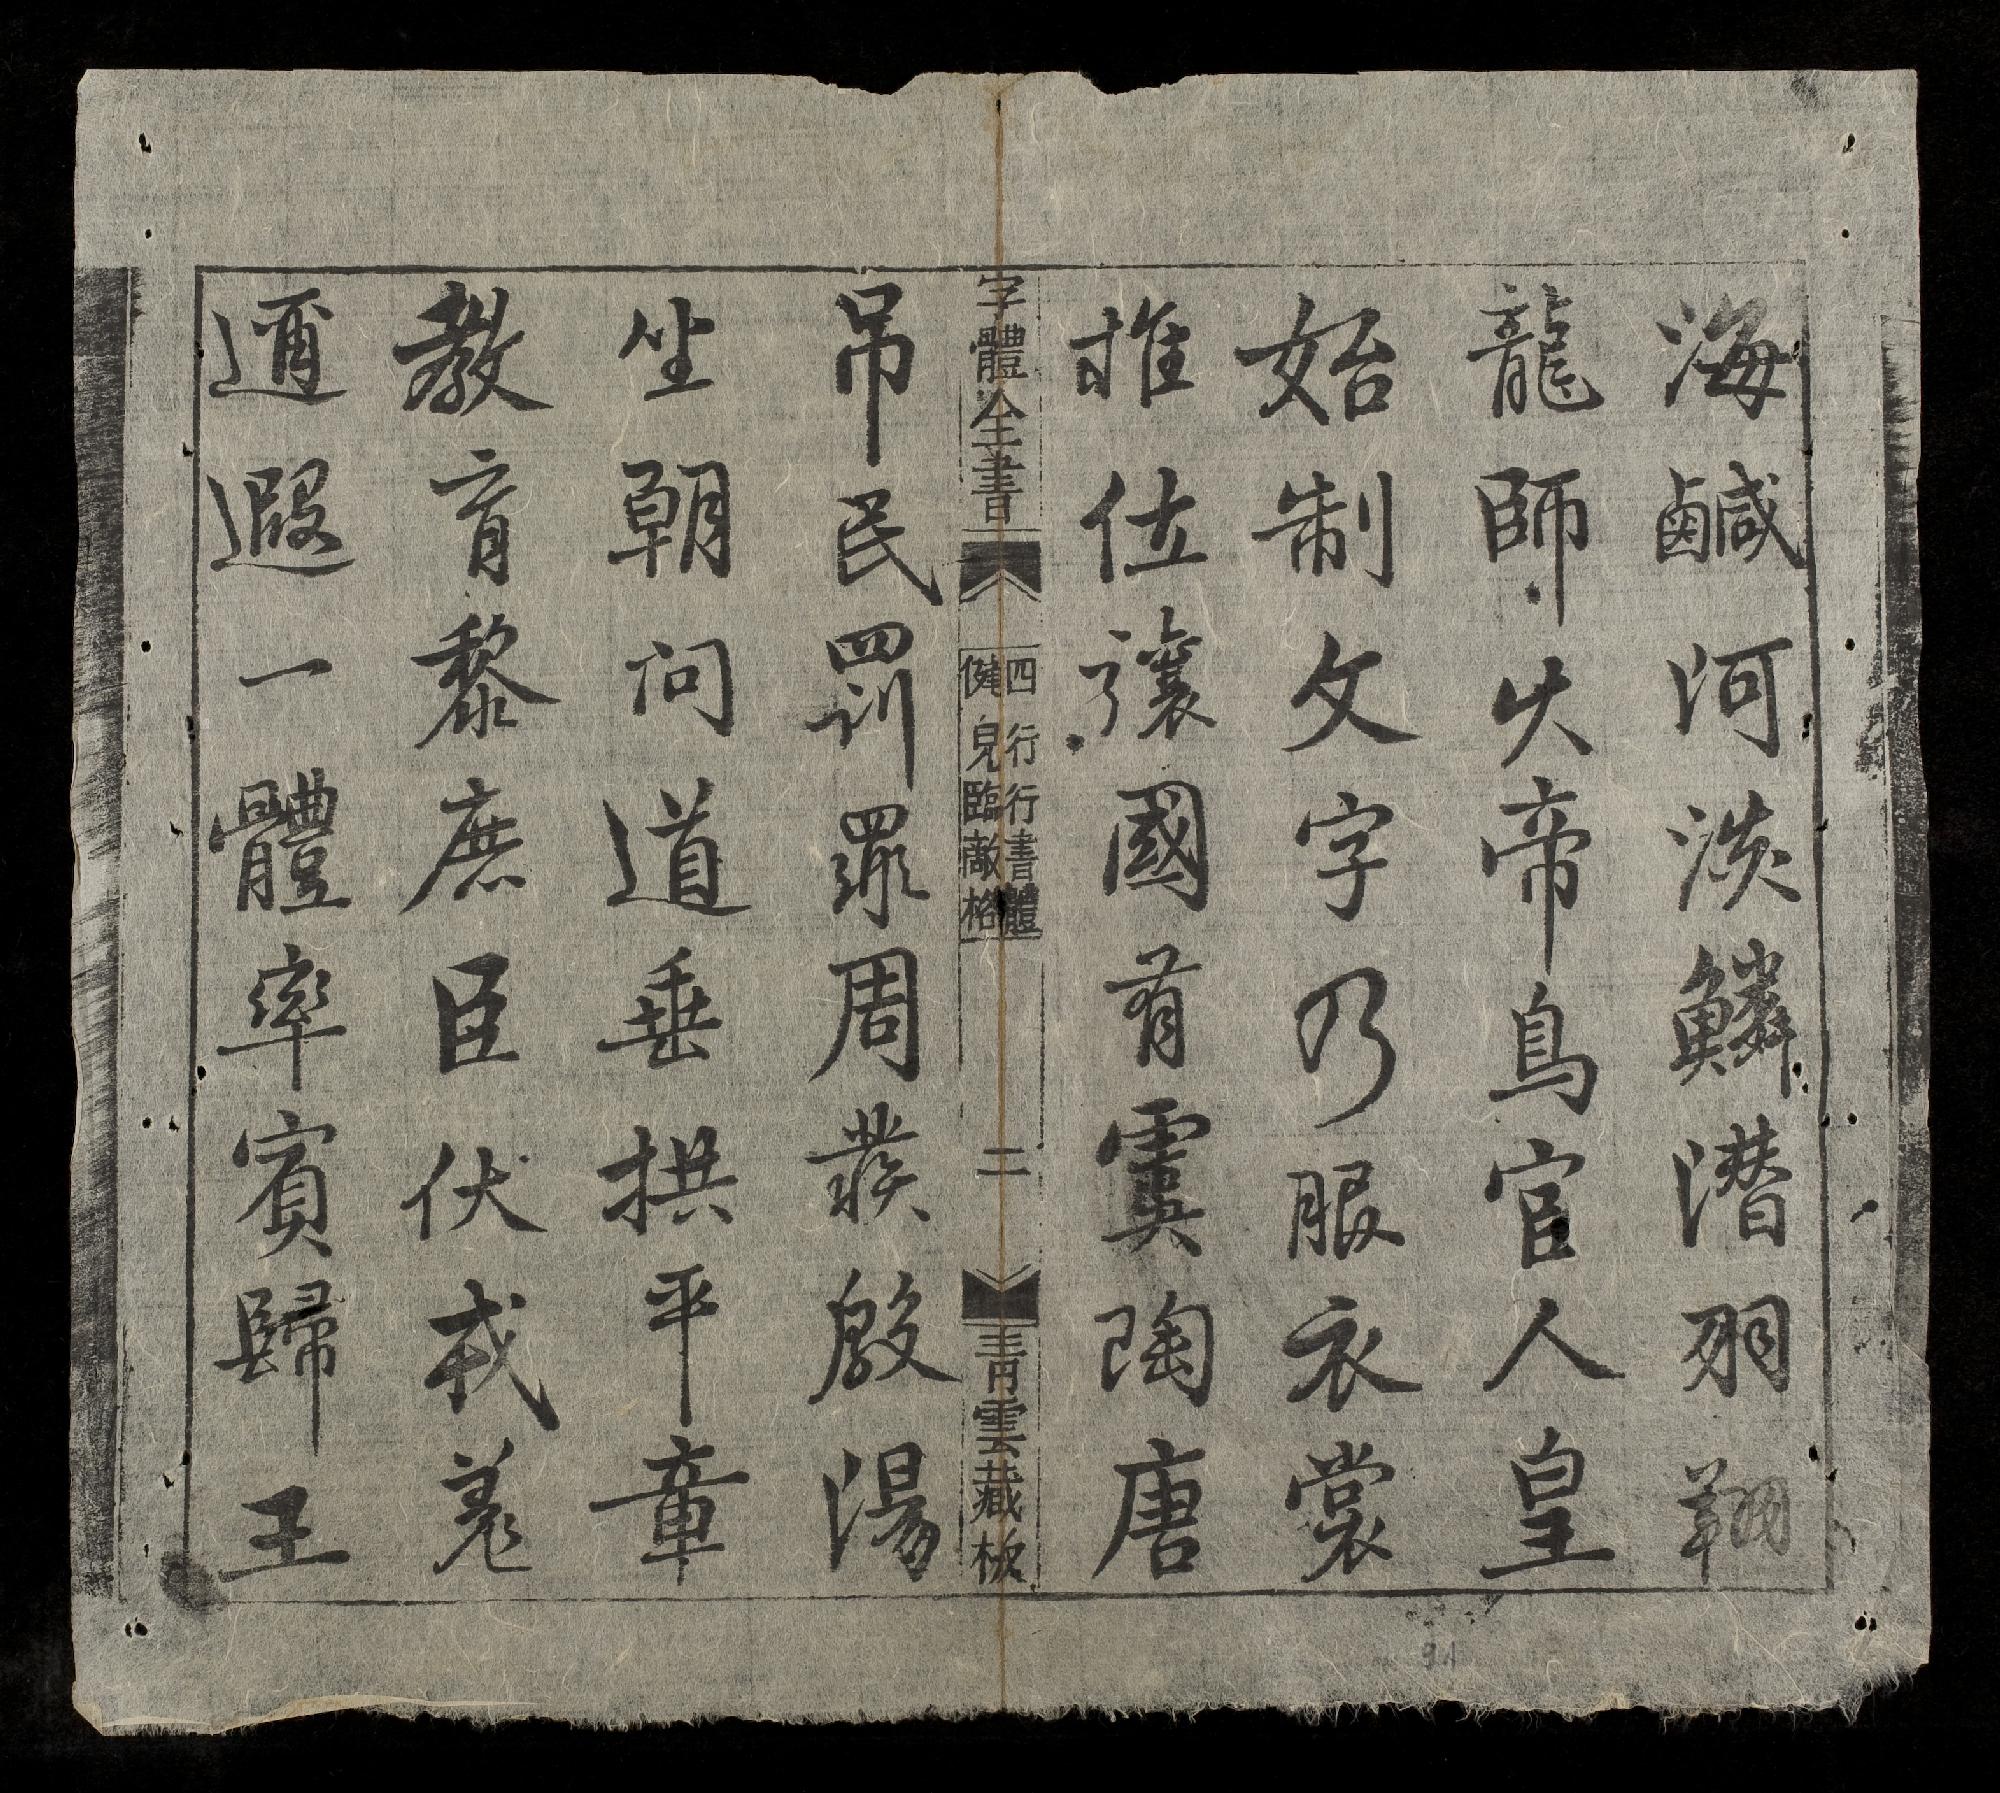 海鹹河淡鱗潛羽翔
龍師火帝鳥官人皇
始制文字乃服衣裳
推位讓國有虞陶唐
字體全書
四行行書體
健兒臨敵格
二
青雲藏板
吊民罰罪周發殷湯
坐朝問道垂拱平章
教育黎庶臣伏戎羌
邇遐一體率賓歸王